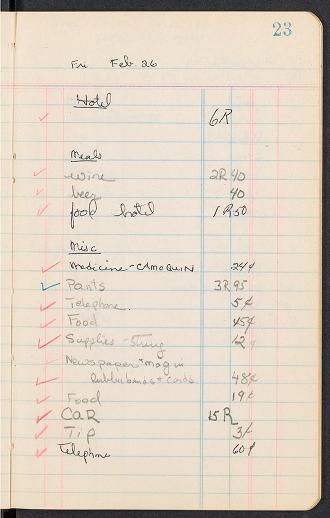 23
Fri Feb. 26
Hotel 6R
Meals
wine 2R 40
beer 40
food hotel 1R50
Misc
medicine - CAMOQUIN 24¢
Pants 3R 95
Telephone. 5¢
Food 45¢
Supplies - String 12¢
Newspaper + mag in
Rubberbands + cards 48¢
Food 19¢
CAR 15R
Tip 3¢
Telephone 60¢